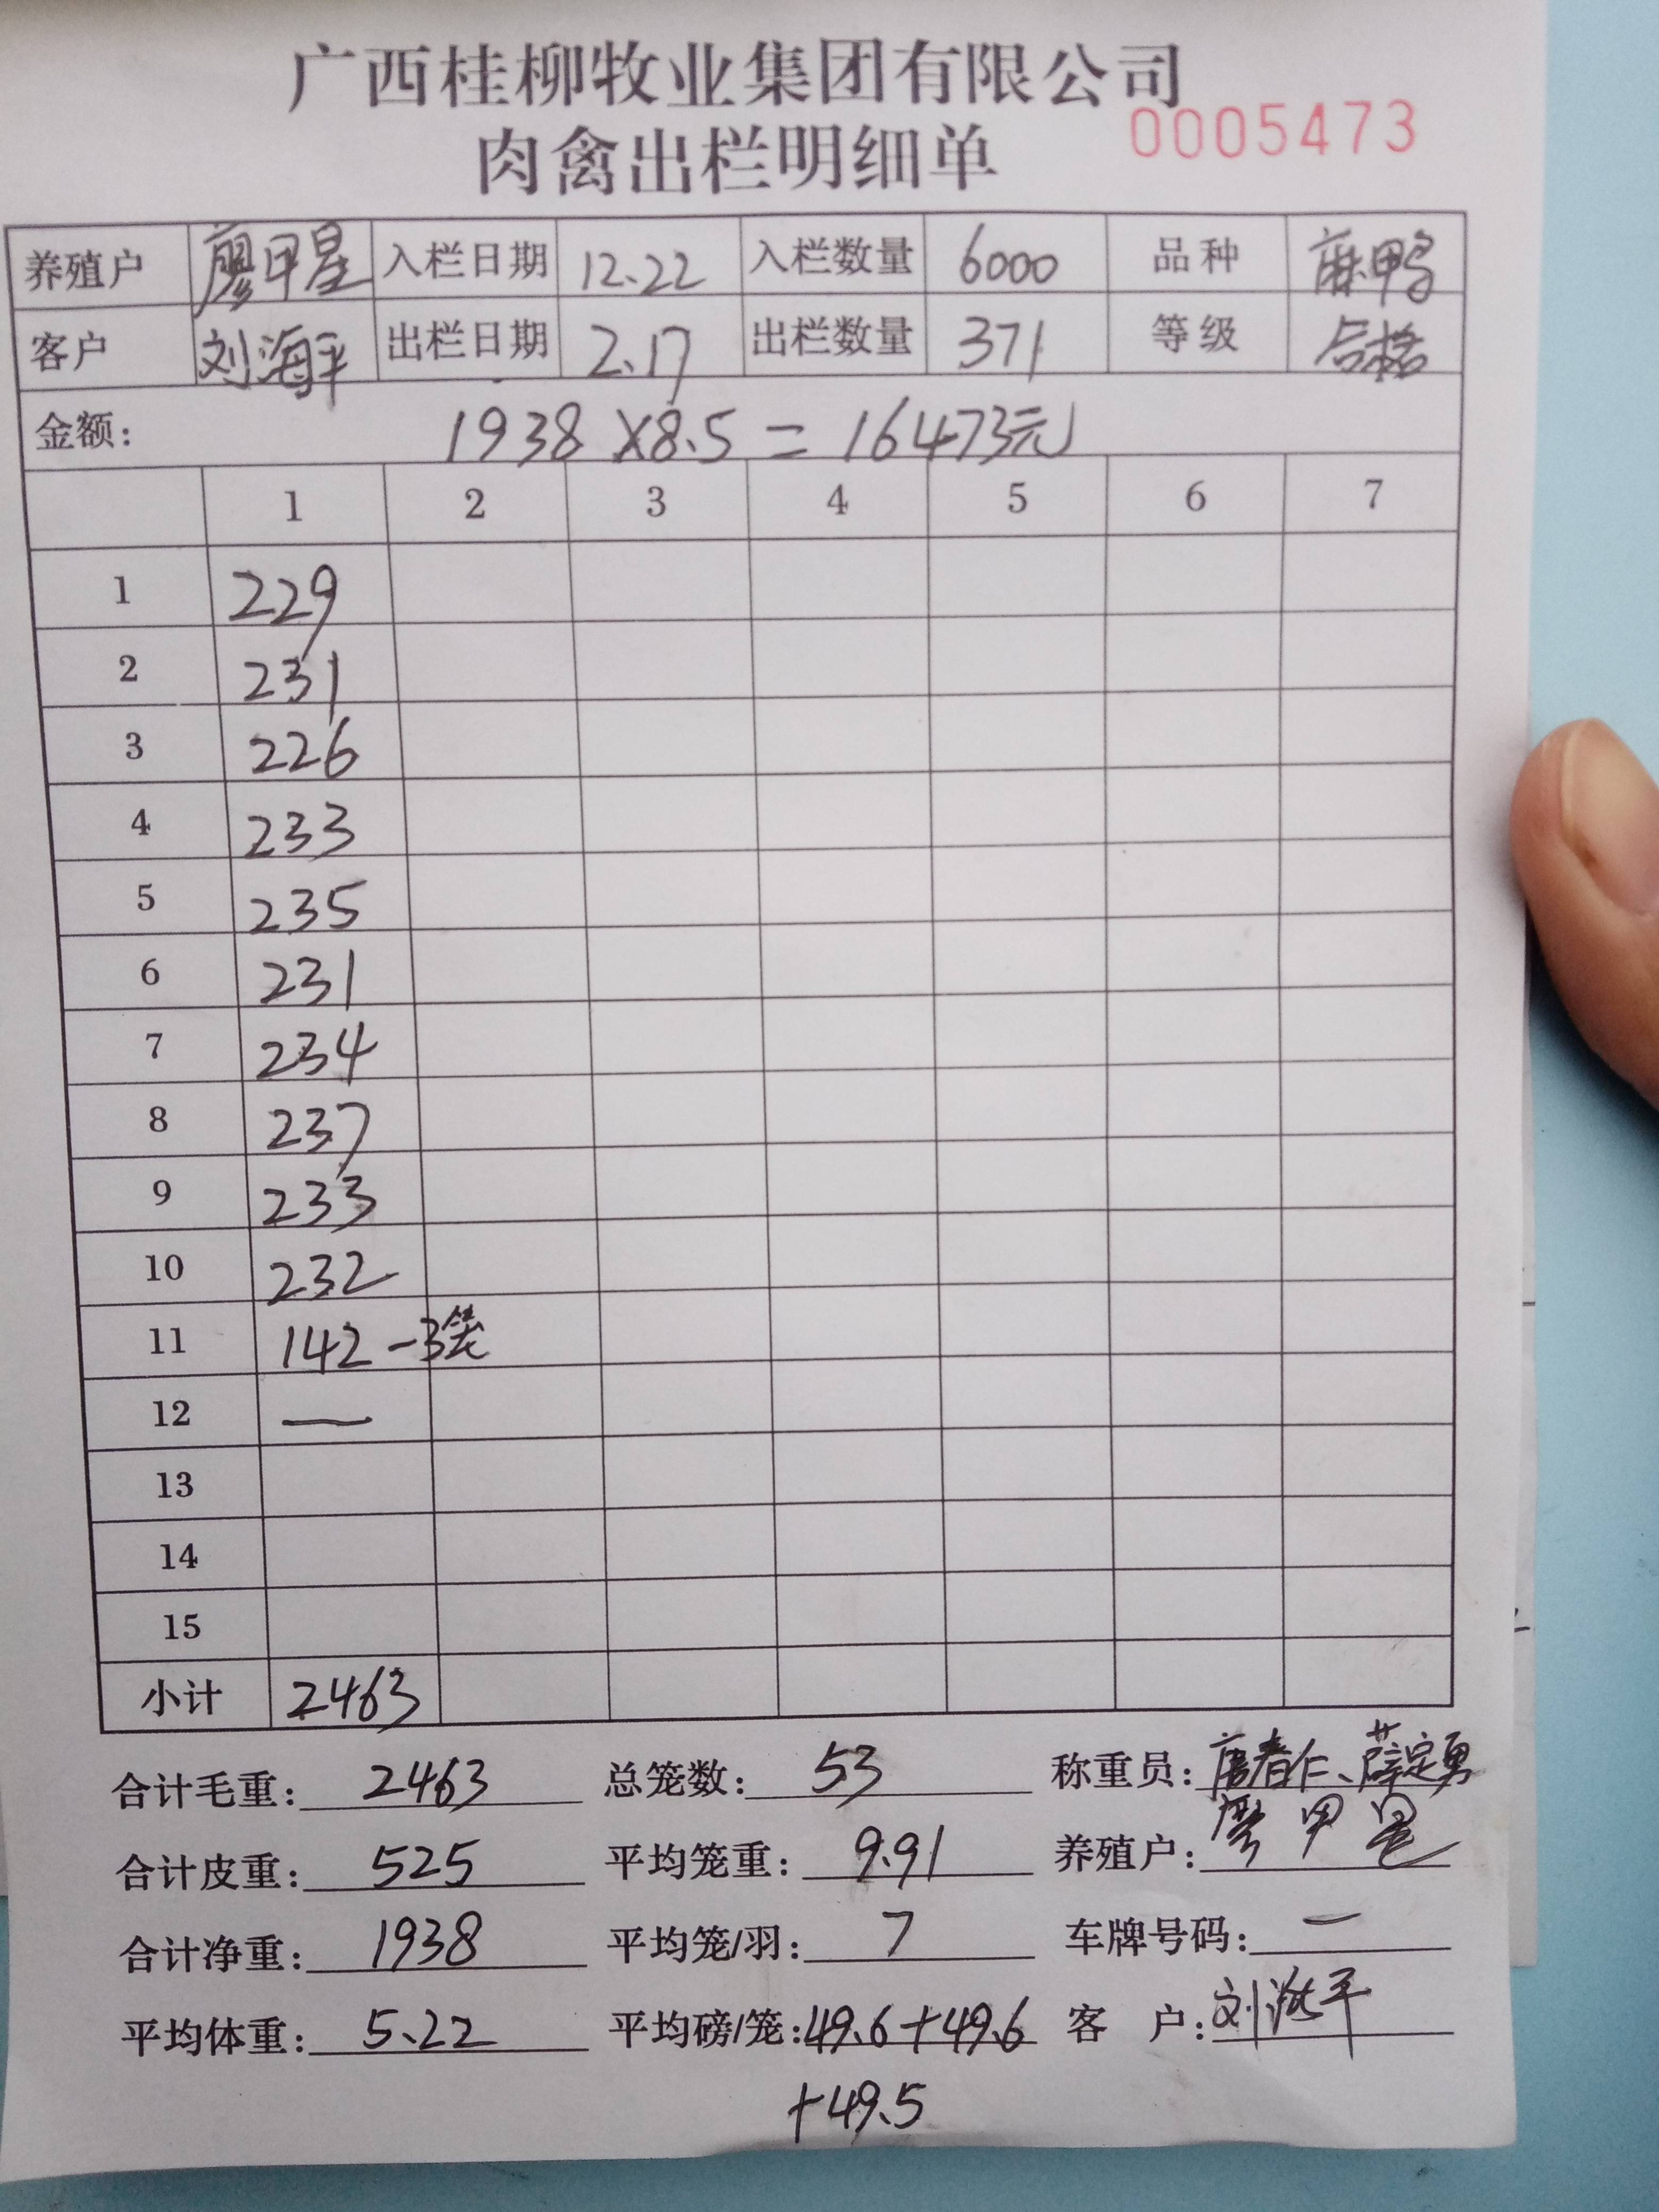 广西桂柳牧业集团有限公司
肉禽出栏明细单 0005473
养殖户 廖甲星 入栏日期 12.22 入栏数量 6000 品种 麻鸭
客户 刘海平 出栏日期 2.17 出栏数量 371 等级 合格
金额: 1938×8.5=16473元
1 2 3 4 5 6 7
1 229
2 231
3 226
4 233
5 235
6 231
7 234
8 237
9 233
10 232
11 142-3笼
12 —
13
14
15
小计 2463
合计毛重: 2463 总笼数: 53 称重员: 唐春仁、薛定勇
合计皮重: 525 平均笼重: 9.91 养殖户: 廖甲星
合计净重: 1938 平均笼/羽: 7 车牌号码: —
平均体重: 5.22 平均磅/笼: 49.6+49.6 客户: 刘海平
+49.5